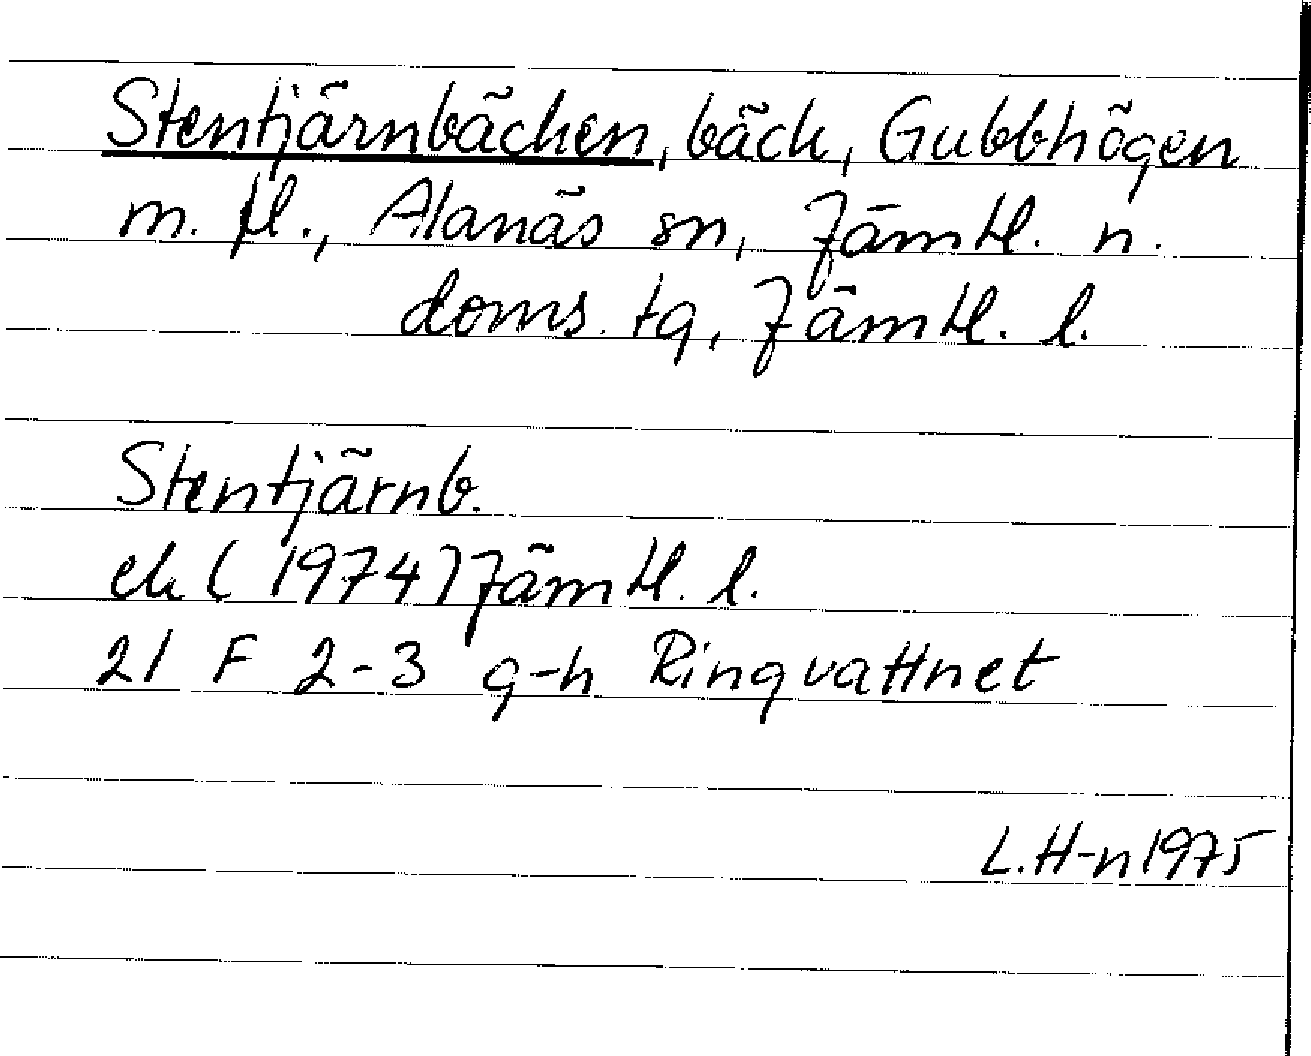 Stentjärnbäcken, bäck, Gubbhögen
m. fl., Alanäs sn, Jämtl. n.
doms. tg, Jämtl. l.
Stentjärnb.
ek (1974) Jämtl. l.
21 F 2-3 g-h Ringvattnet
L.H-n 1975